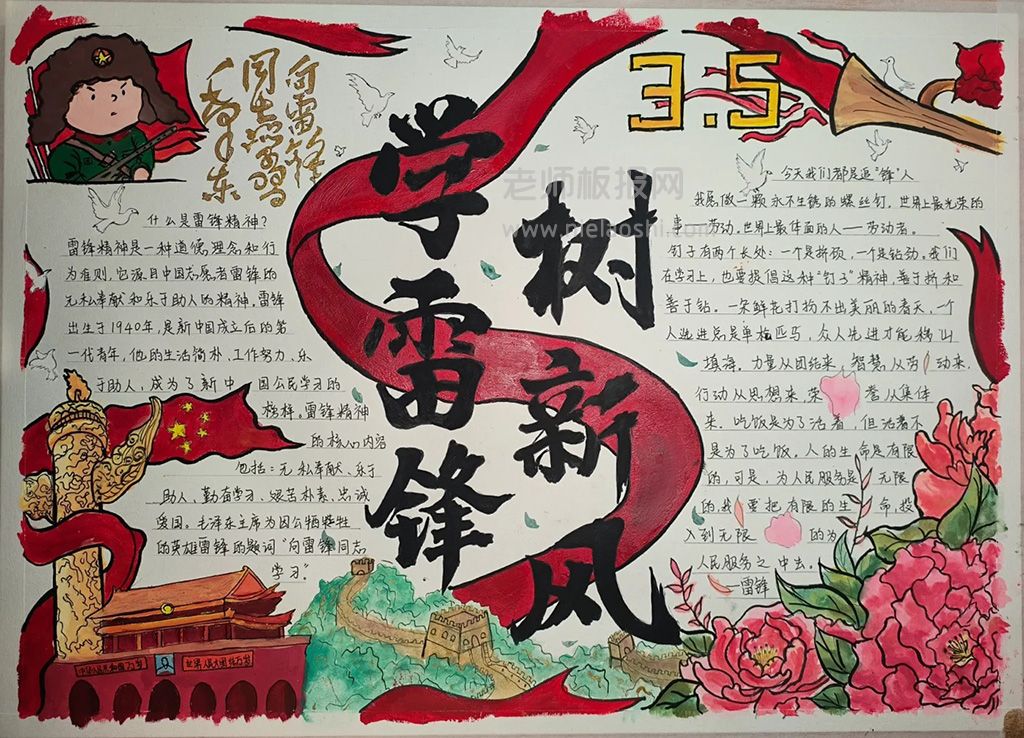 向雷锋
同志学习
毛泽东
3.5
学雷锋
树新风
老师板报网
www.meiaoshi.com
什么是雷锋精神?
雷锋精神是一种道德理念和行
为准则,它源自中国志愿者雷锋的
无私奉献和乐于助人的精神。雷锋
出生于1940年,是新中国成立后的第
一代青年,他的生活简朴、工作努力、乐
于助人,成为了新中国公民学习的
榜样。雷锋精神
的核心内容
包括:无私奉献、乐于
助人、勤奋学习、艰苦朴素、忠诚
爱国。毛泽东主席为因公牺牲
的英雄雷锋的题词“向雷锋同志
学习”
今天我们都是追“锋”人
我愿做一颗永不生锈的螺丝钉。世界上最光荣的
事——劳动。世界上最体面的人——劳动者。
钉子有两个长处:一个是挤劲,一个是钻劲。我们
在学习上,也要提倡这种“钉子”精神,善于挤和
善于钻。一朵鲜花打扮不出美丽的春天,一个
人先进总是单枪匹马,众人先进才能移山
填海。力量从团结来,智慧从劳动来,
行动从思想来,荣誉从集体
来。吃饭是为了活着,但活着不
是为了吃饭。人的生命是有限
的,可是,为人民服务是无限
的,我要把有限的生命,投
入到无限的为
人民服务之中去。
——雷锋
中华人民共和国万岁
世界人民大团结万岁